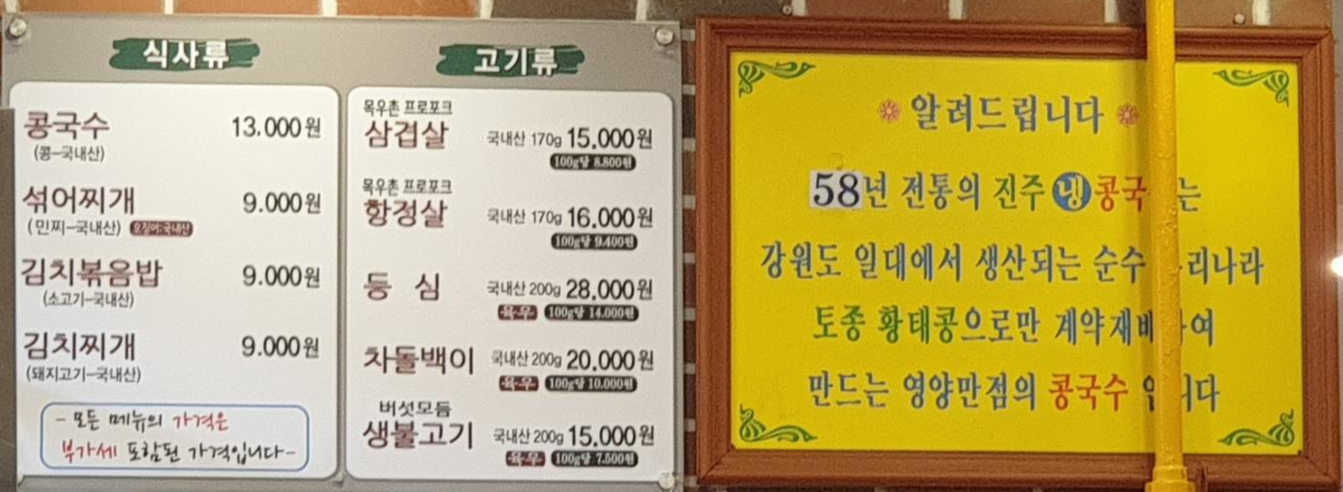 식사류
콩국수 13.000원
(콩-국내산)
섞어찌개 9.000원
(민찌-국내산) 오징어:국내산
김치볶음밥 9.000원
(소고기-국내산)
김치찌개 9.000원
(돼지고기-국내산)
- 모든 메뉴의 가격은
부가세 포함된 가격입니다-
고기류
목우촌 프로포크
삼겹살 국내산 170g 15.000원
100g당 8.800원
목우촌 프로포크
항정살 국내산 170g 16.000원
100g당 9.400원
등 심 국내산 200g 28.000원
육우 100g당 14.000원
차돌백이 국내산 200g 20.000원
육우 100g당 10.000원
버섯모듬
생불고기 국내산 200g 15.000원
육우 100g당 7.500원
알려드립니다
58년 전통의 진주 냉 콩국 는
강원도 일대에서 생산되는 순수 리나라
토종 황태콩으로만 계약재배 여
만드는 영양만점의 콩국수 입니다